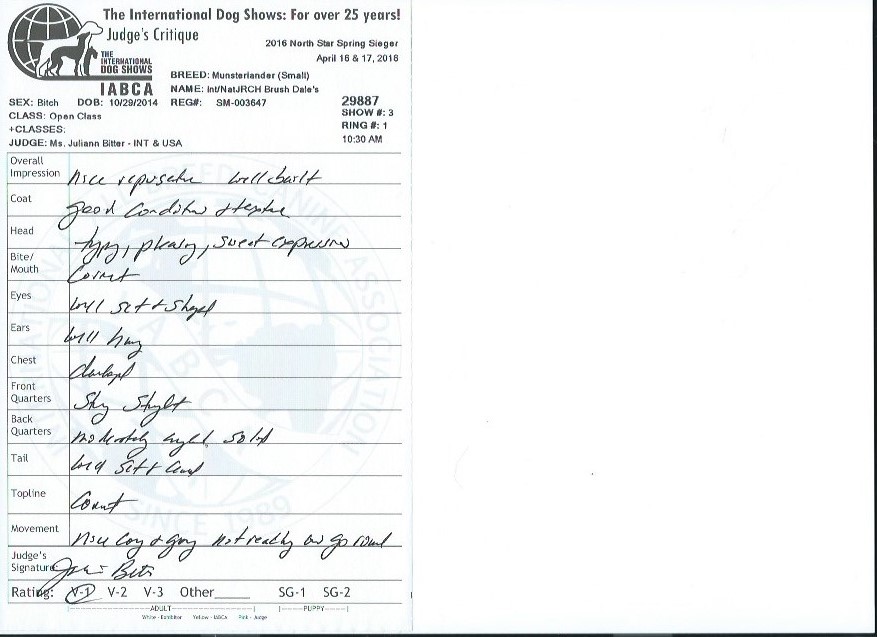 The International Dog Shows: For over 25 years!
Judge's Critique
2016 North Star Spring Sieger
April 16 & 17, 2016
THE
INTERNATIONAL
DOG SHOWS
IABCA
BREED: Munsterlander (Small)
NAME: Int/NatJRCH Brush Dale's
SEX: Bitch DOB: 10/29/2014 REG#: SM-003647
29887
CLASS: Open Class
SHOW #: 3
+CLASSES:
RING #: 1
JUDGE: Ms. Juliann Bitter - INT & USA
10:30 AM
Overall
Impression Nice well built
Coat good Condition & texture
Head typy, pleasing, sweet expression
Bite/
Mouth Correct
Eyes well set & shaped
Ears well hung
Chest
Front
Quarters
Back
Quarters moderately angled, solid
Tail well set &
Topline Correct
Movement Nice coming & going not ready on go round
Judge's
Signature
Rating: V-1 V-2 V-3 Other_____ SG-1 SG-2
ADULT PUPPY
White - Exhibitor Yellow - IABCA Pink - Judge
SINCE 1989